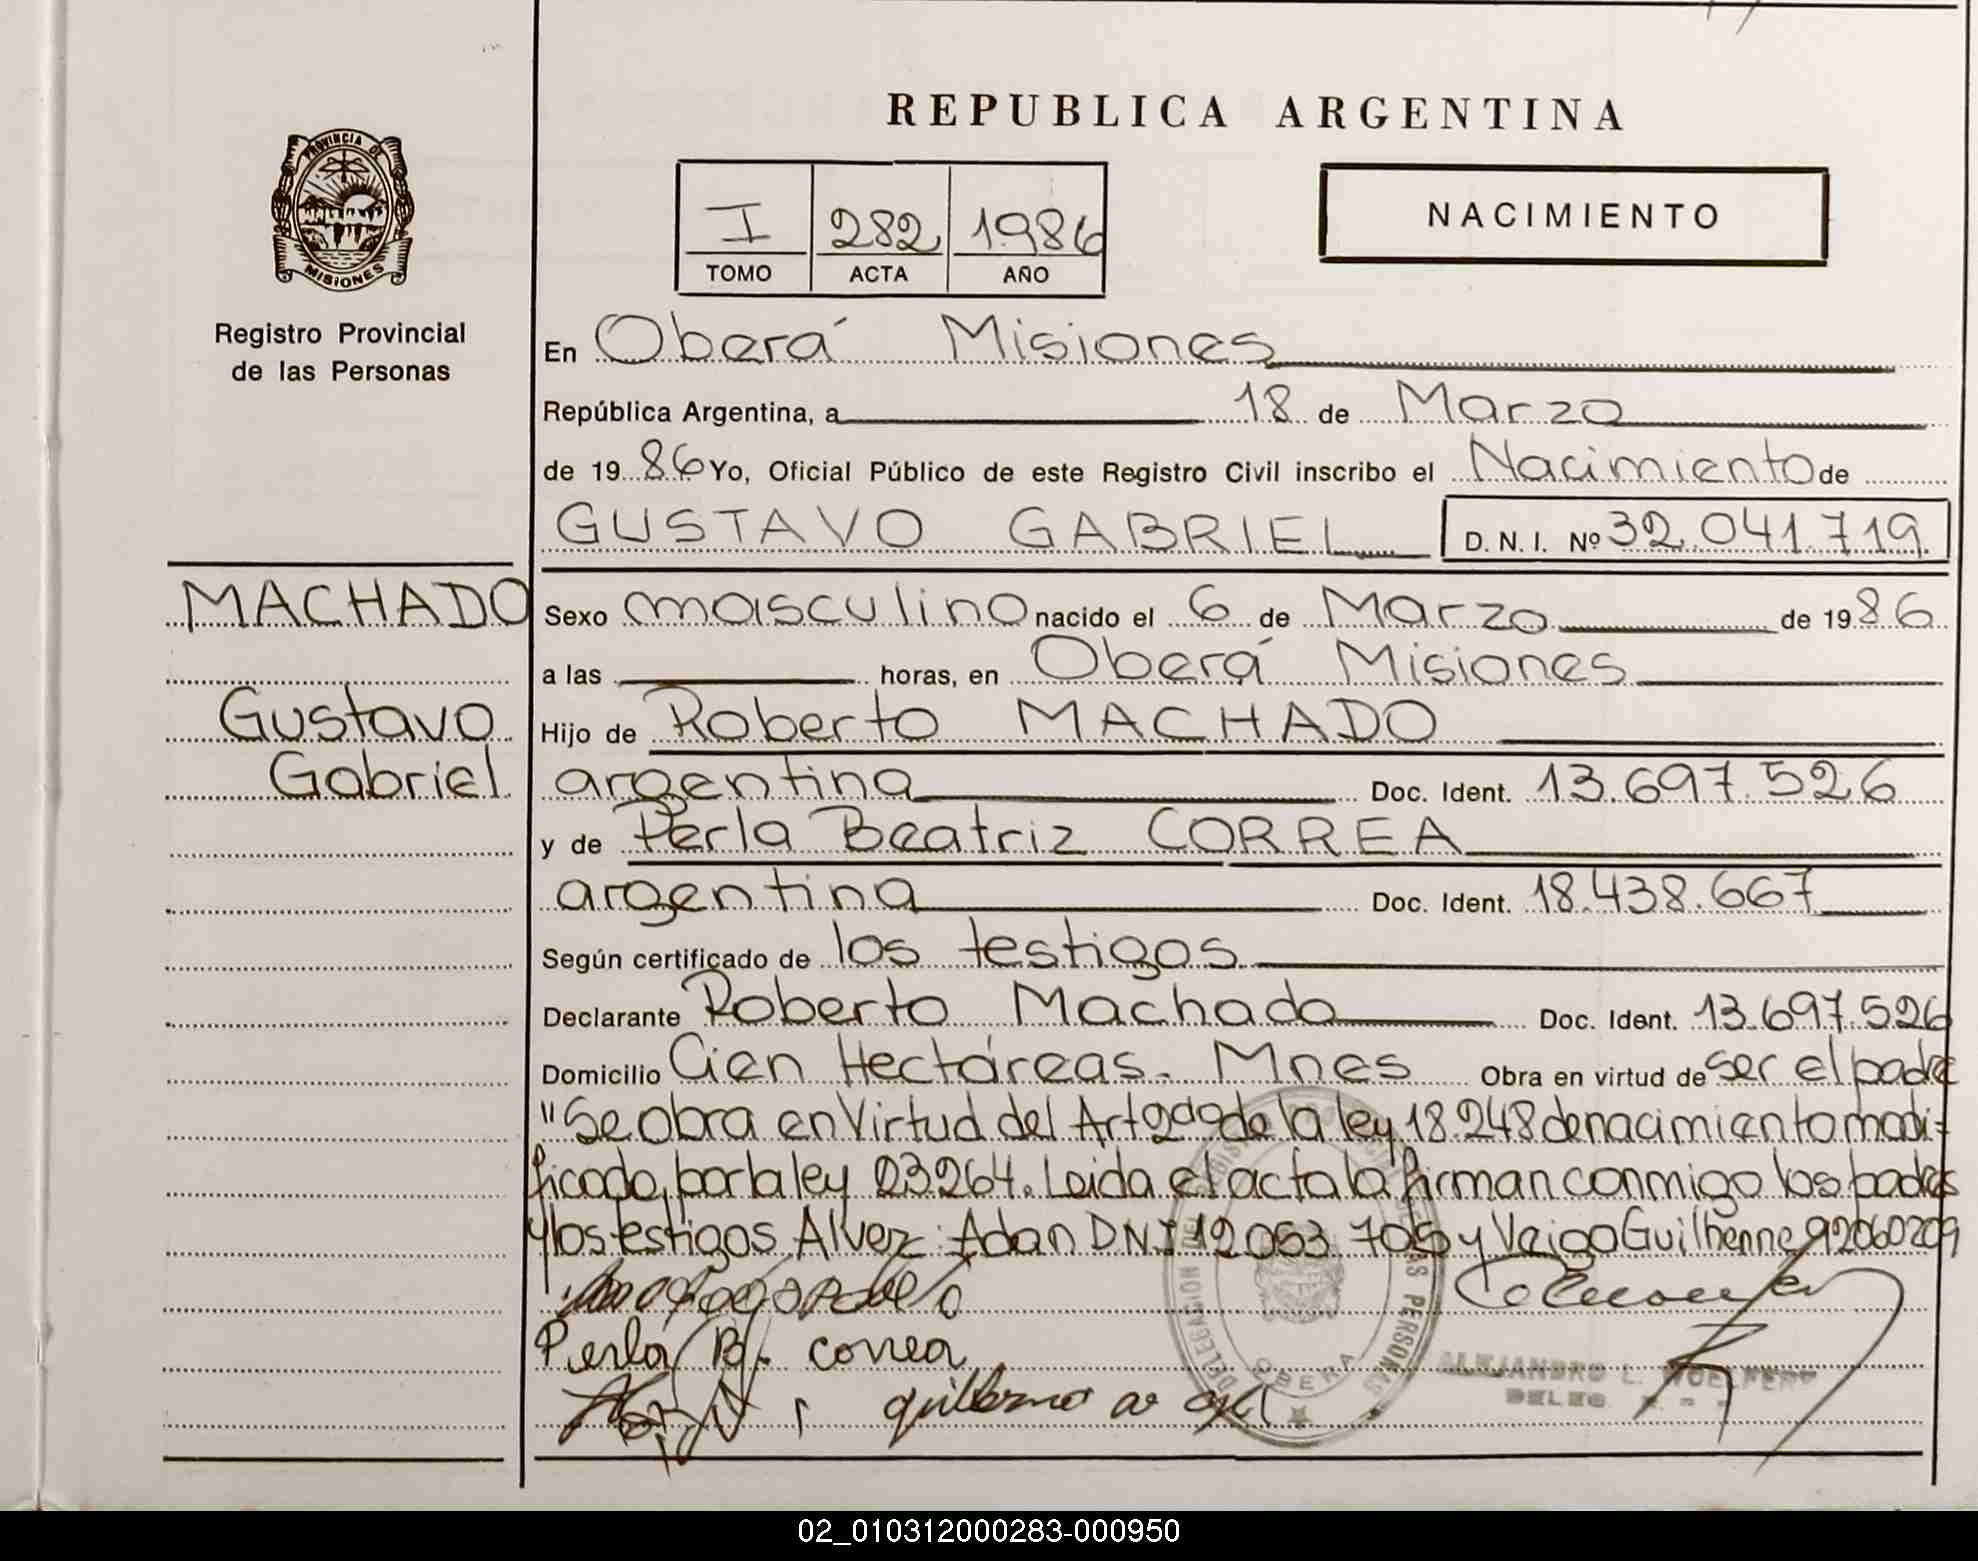 REPUBLICA ARGENTINA
PROVINCIA DE
MISIONES
Registro Provincial
de las Personas
I 282 1986
TOMO ACTA AÑO
NACIMIENTO
En Oberá Misiones
República Argentina, a 18 de Marzo
de 1986 Yo, Oficial Público de este Registro Civil inscribo el Nacimiento de
GUSTAVO GABRIEL D. N. I. Nº 32.041.719
MACHADO
Gustavo
Gabriel
Sexo masculino nacido el 6 de Marzo de 1986
a las horas, en Oberá Misiones
Hijo de Roberto MACHADO
argentina Doc. Ident. 13.697.526
y de Perla Beatriz CORREA
argentina Doc. Ident. 18.438.667
Según certificado de los testigos
Declarante Roberto Machado Doc. Ident. 13.697.526
Domicilio Cien Hectáreas. Mnes Obra en virtud de ser el padre
"Se obra en Virtud del Art 2do de la ley 18.248 de nacimiento modi-
ficado por la ley 23264. Leida el acta la firman conmigo los padres
y los testigos Alvez Adan DNI 12053 705 y Veigo Guilherme 92060209
Perla B. correa
guillermo
DELEGACION
PERSONAS
OBERA
ALEJANDRO L.
02_010312000283-000950